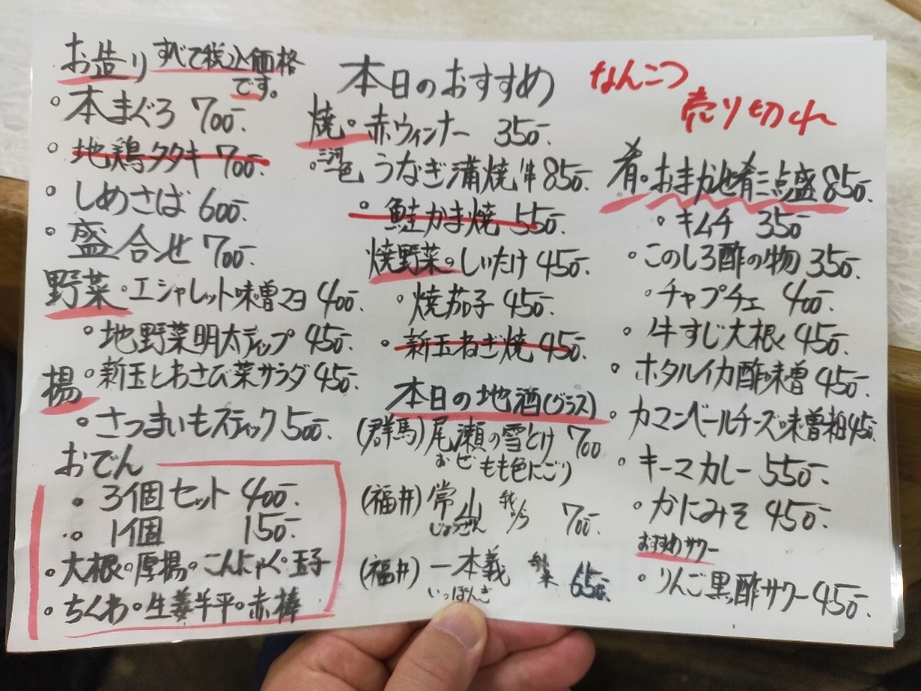 お造り すべて税込価格
です。
・本まぐろ 700-
・地鶏タタキ 700-
・しめさば 600-
・盛合せ 700-
野菜・エシャレット味噌マヨ 400-
・地野菜明太ディップ 450-
・新玉とわさび菜サラダ 450-
揚
・さつまいもスティック 500-
おでん
・3個セット 400-
・1個 150-
・大根・厚揚・こんにゃく・玉子
・ちくわ・生姜半平・赤棒
本日のおすすめ
焼・赤ウィンナー 350-
・三河一色 うなぎ蒲焼串 850-
・鮭かま焼 550-
焼野菜・しいたけ 450-
・焼茄子 450-
・新玉ねぎ焼 450-
本日の地酒(グラス)
(群馬)尾瀬の雪どけ 700
おぜ もも色にごり
(福井)常山 700-
じょうざん
(福井)一本義 650-
いっぽんぎ
なんこつ
売り切れ
肴・おまかせ肴三点盛 850-
・キムチ 350-
・このしろ酢の物 350-
・チャプチェ 400-
・牛すじ大根 450-
・ホタルイカ酢味噌 450-
・カマンベールチーズ味噌 450-
・キーマカレー 550-
・かにみそ 450-
おすすめサワー
・りんご黒酢サワー 450-